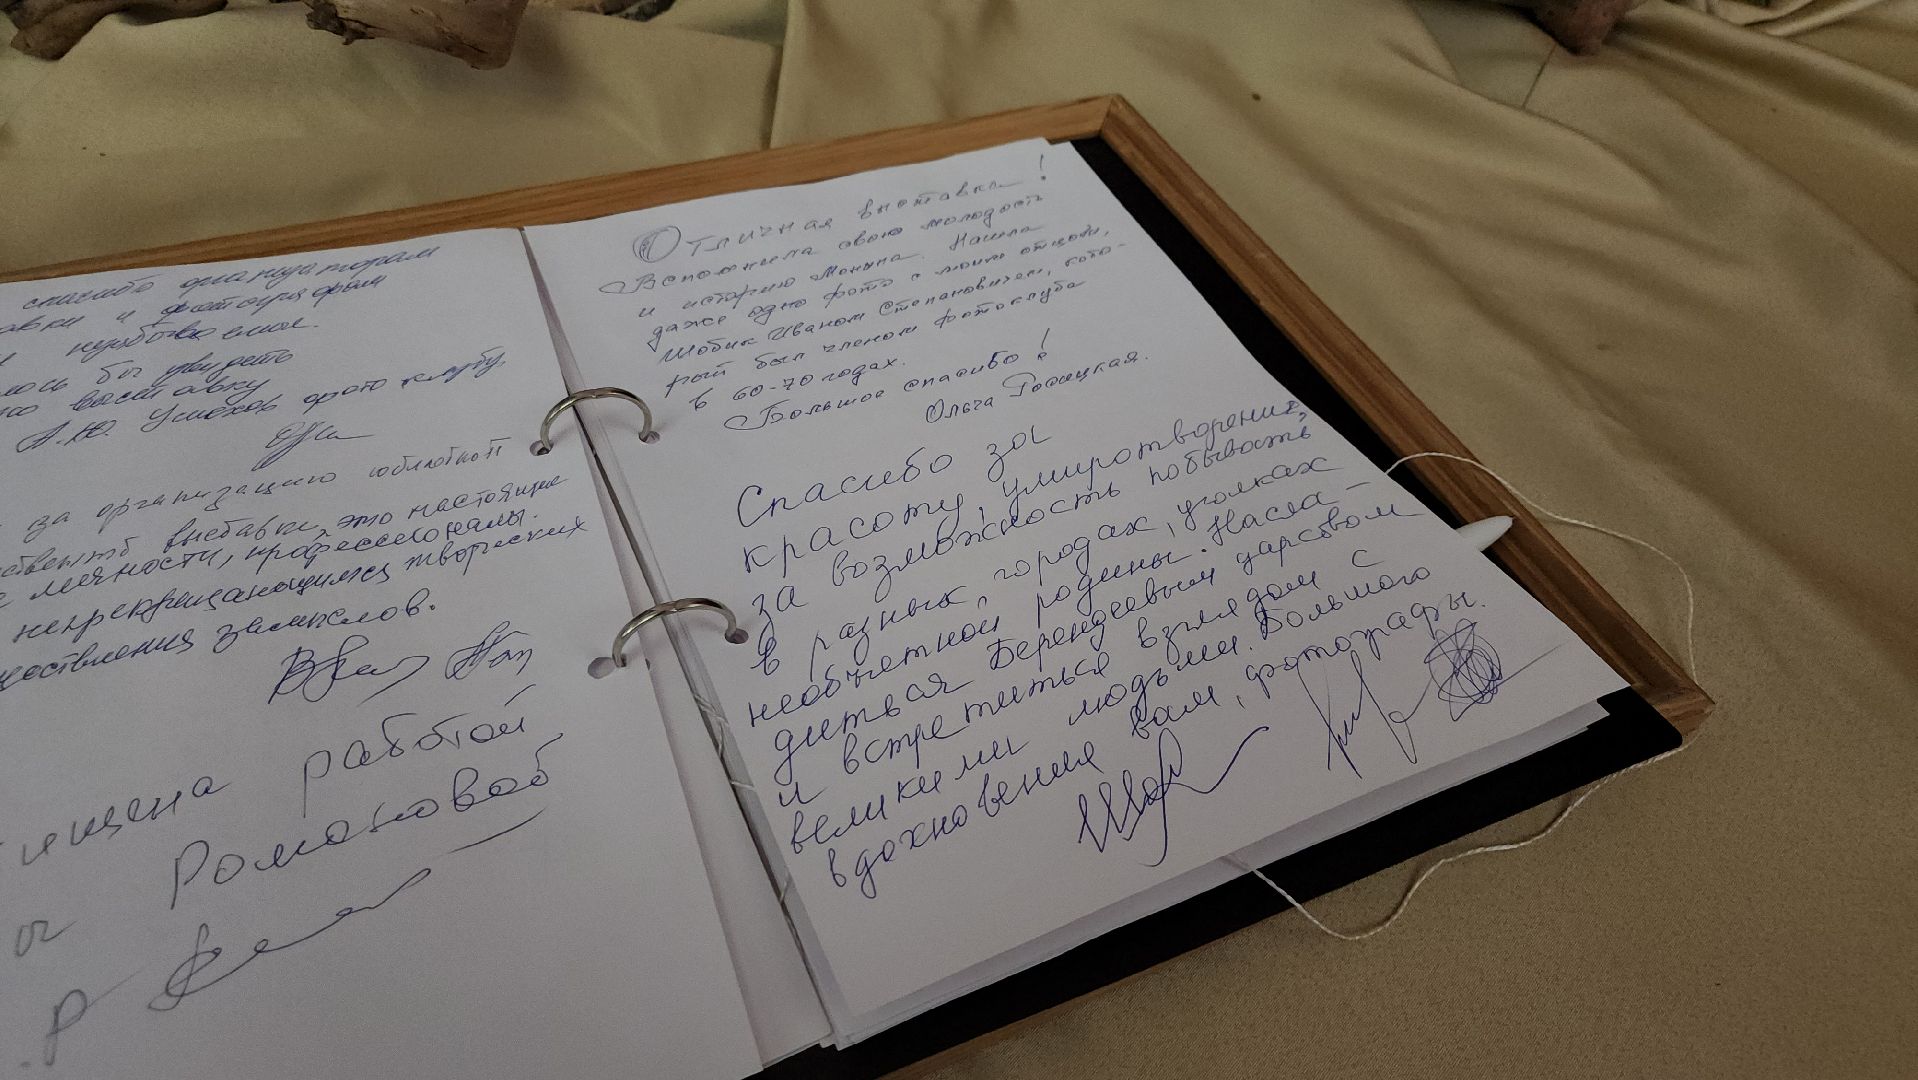 спасибо организаторам
и фотографам
бы увидеть
выставку
А.Ю. Успехов фотоклубу
за организацию юбилейной
выставки, это настоящие
личности, профессионалы.
творческих
замыслов.
работой
Романовой
Отличная выставка!
Вспомнила свою молодость
и историю Монина. Нашла
даже одно фото с моим отцом,
Шобик Иваном Степановичем, кото-
рый был членом фотоклуба
в 60-70 годах.
Большое спасибо!
Ольга Росицкая.
Спасибо за
красоту, умиротворение,
за возможность побывать
в разных городах, уголках
необъятной родины. Насла-
диться Берендеевым царством
и встретиться взглядом с
великими людьми. Большого
вдохновения вам, фотографы.